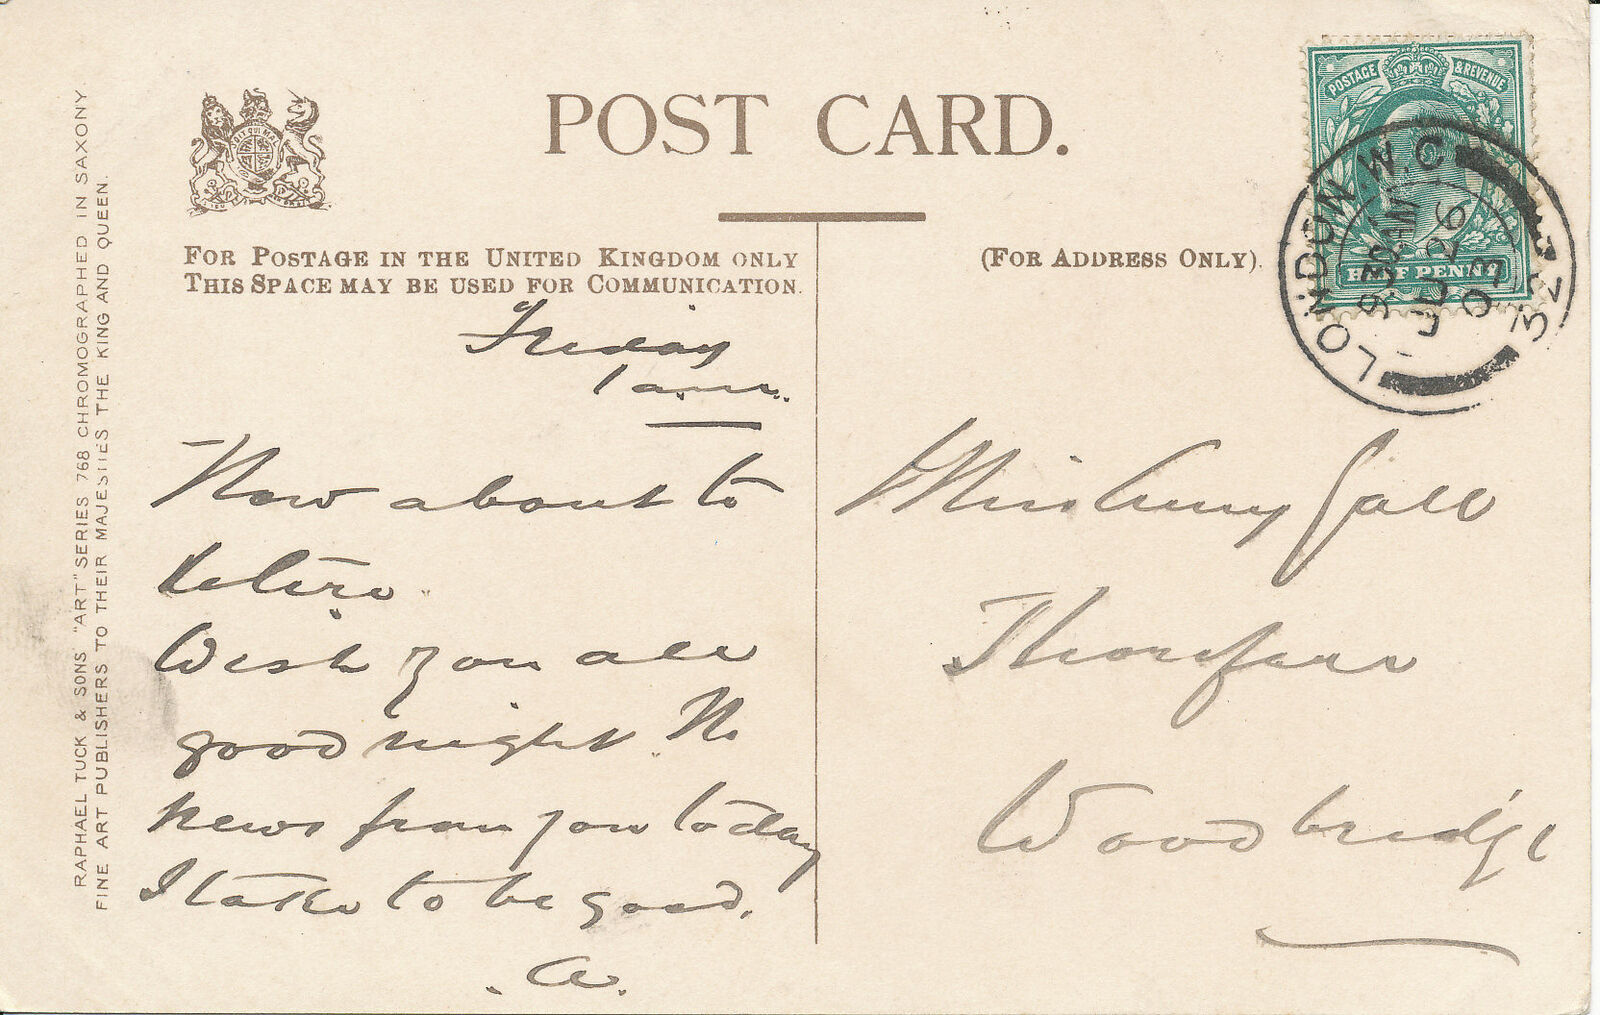 POST CARD.
FOR POSTAGE IN THE UNITED KINGDOM ONLY
THIS SPACE MAY BE USED FOR COMMUNICATION.
(FOR ADDRESS ONLY)
POSTAGE & REVENUE
HALF PENNY
LONDON W.C
9.30 AM
JU 26
03
32
RAPHAEL TUCK & SONS "ART" SERIES 768 CHROMOGRAPHED IN SAXONY
FINE ART PUBLISHERS TO THEIR MAJESTIES THE KING AND QUEEN.
Friday
1 a.m.
Now about to
retire.
Wish you all
good night. No
news from you today
I take to be good.
A.
Miss Amy Gall
Woodbridge